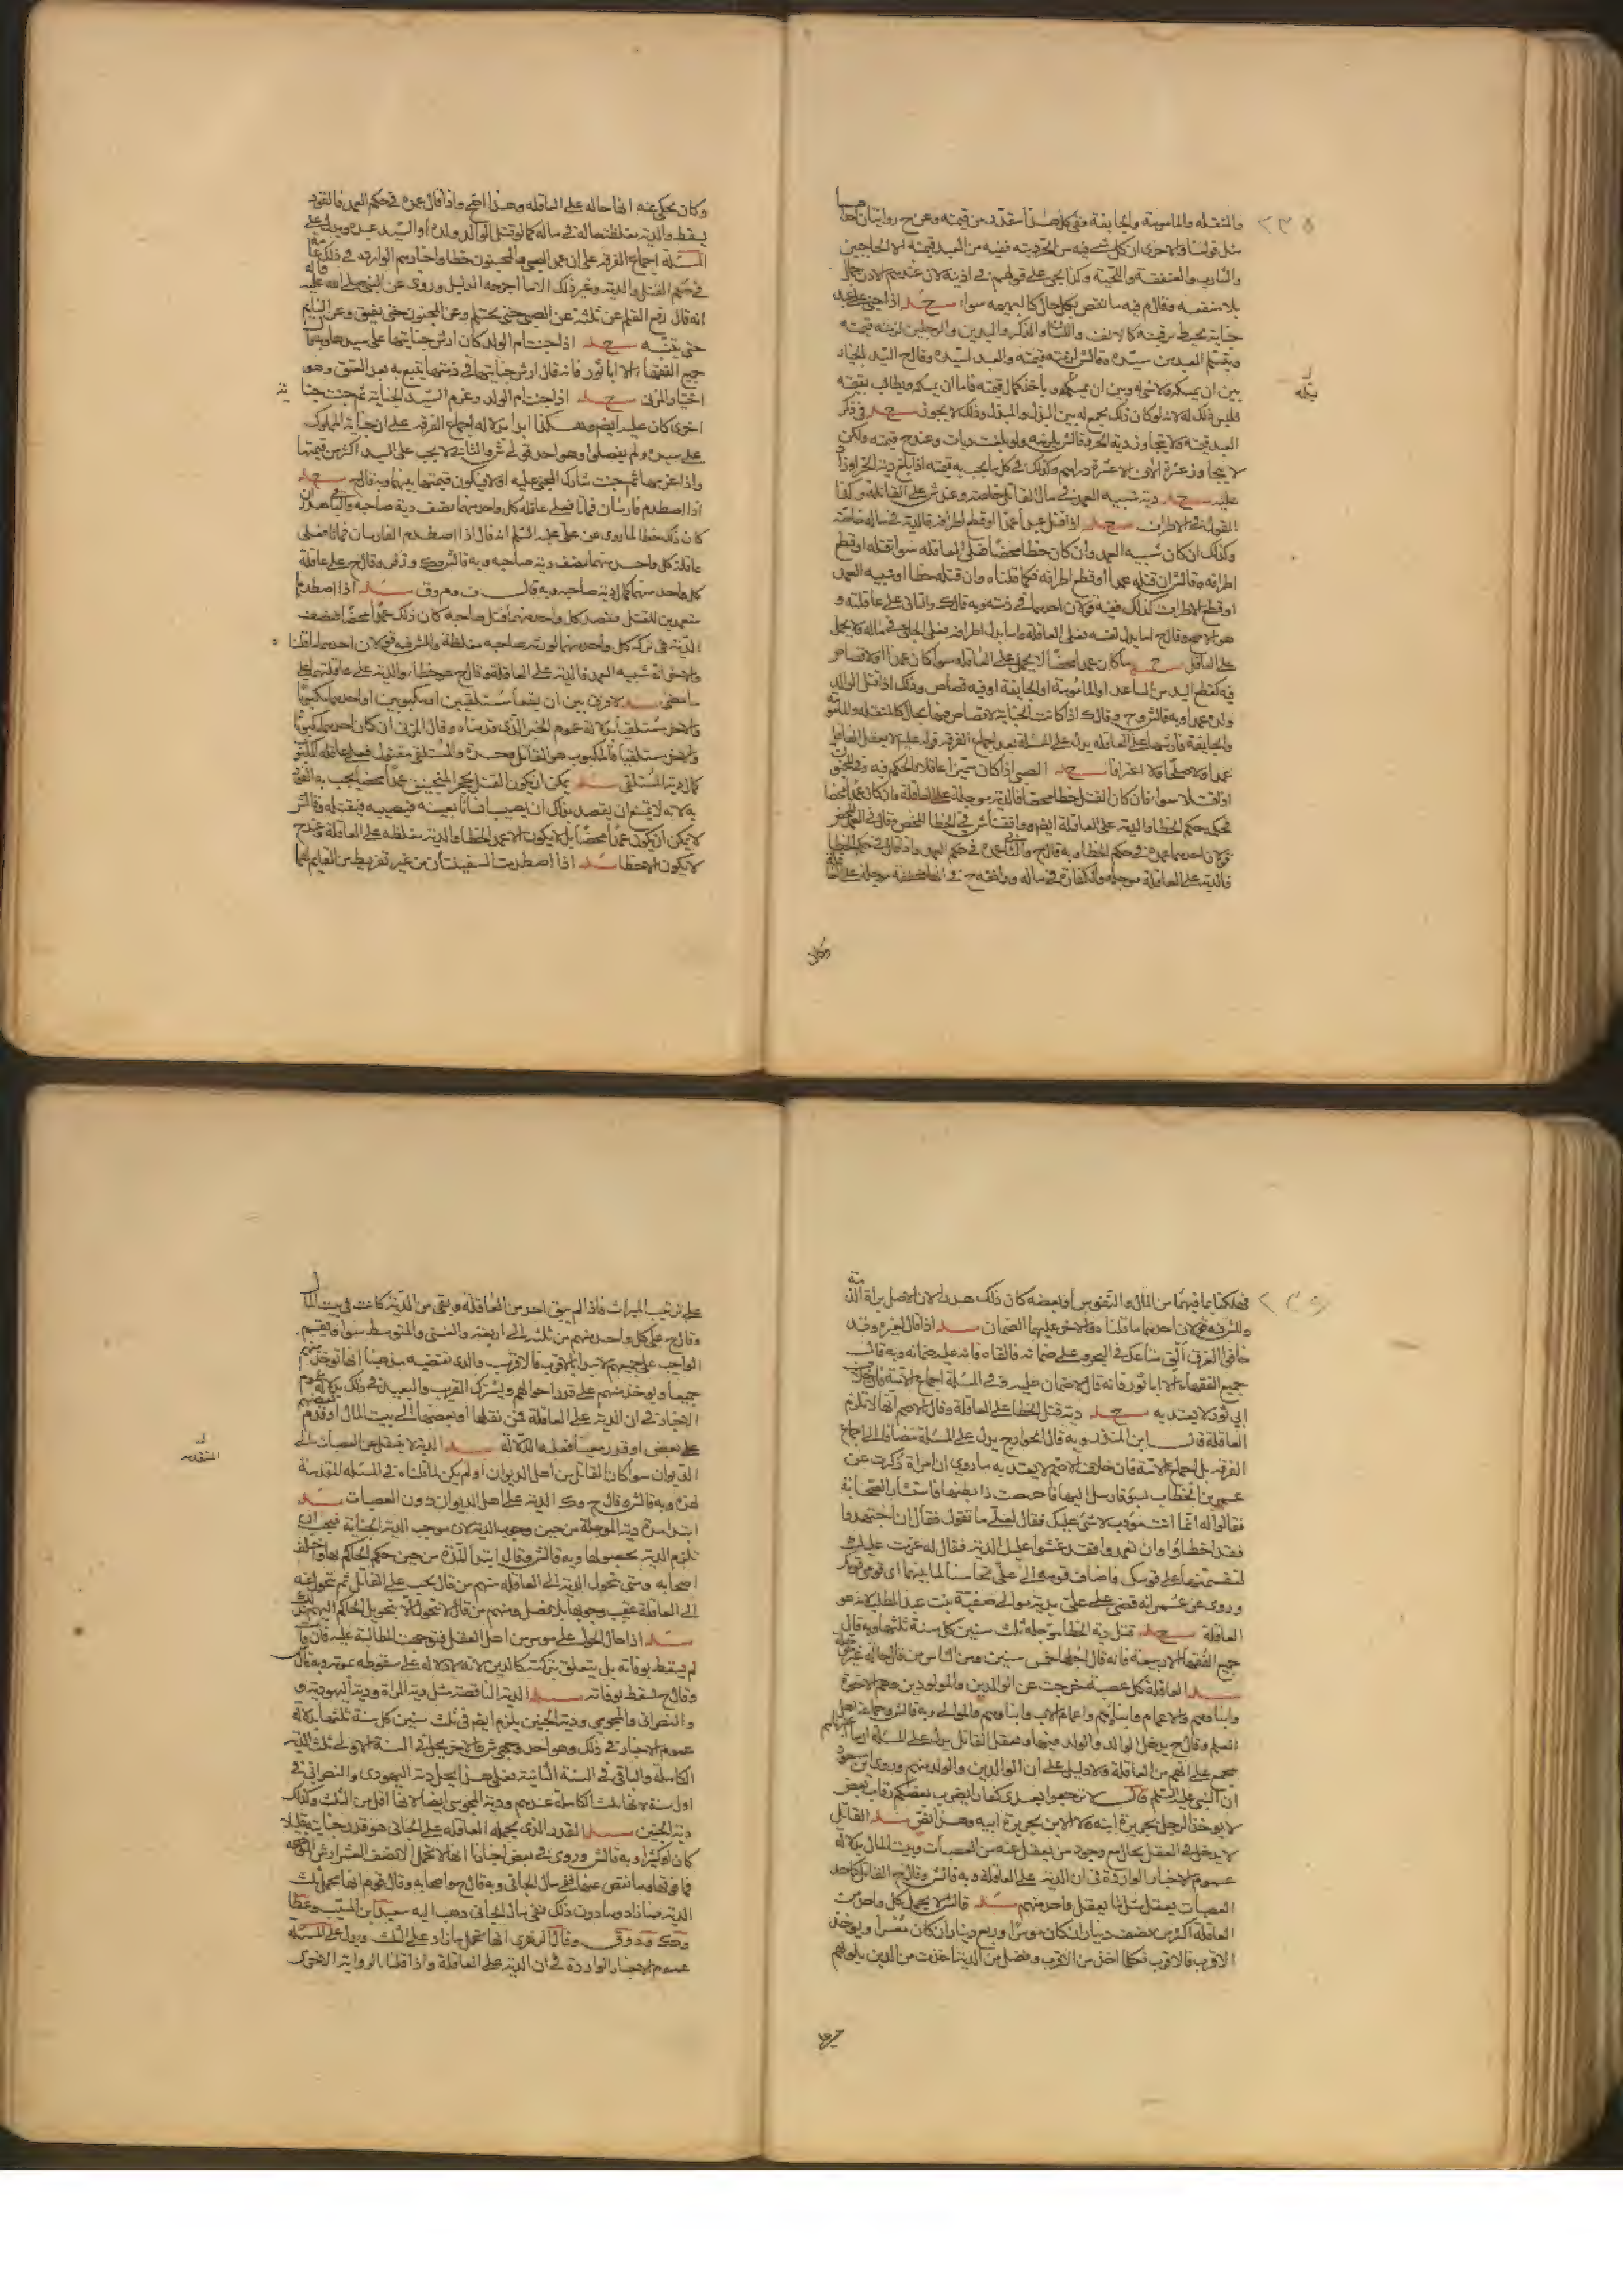 والمنقله والمامومة والجايفة ففي كل هذا مقدر من قيمته وعن ح روايتان احدهما
مثل قولنا والاخرى ان كل شي فيه من الحر ديته ففيه من العبد قيمته الا الحاجبين
والشارب والعنفقة واللحية وكذا يجي على قولهم في اذنيه لان عندهم الاذن جمال
بلا منفعة وقال م فيه ما نقص بكل حال كالبهيمه سواء اذا جنى على عبد
جناية يحيط بقيمته كالانف واللسان والذكر واليدين والرجلين لزمته قيمته
ويتسلم العبد من سيده وقال ش لزمته قيمته والعبد لسيده وقال ح السيد بالخيار
بين ان يمسكه ولا شي له وبين ان يسلمه وياخذ كمال قيمته فاما ان يمسكه ويطالب بقيمته
فليس ذلك له لانه لو كان ذلك لجمع له بين البدل والمبدل وذلك لا يجوز في ذكر
العبد قيمته ولا يتجاوز دية الحر وقال ش يلزمه ولو بلغت ديات وعند ح قيمته ولكن
لا يتجاوز عشرة الاف الا عشرة دراهم وكذلك في كل ما يجب به قيمته اذا بلغ دية الحر او زاد
عليه دية شبيه العمد في مال القاتل خاصة وعند ش على العاقلة وكذا
القول في الاطراف اذا قتل عبدا عمدا او قطع اطرافه فالدية في ماله خاصة
وكذلك ان كان شبيه العمد وان كان خطا محضا فعلى العاقله سوا قتله او قطع
اطرافه وقال ش ان قتله عمدا او قطع اطرافه فكما قلناه وان قتله خطا او شبيه العمد
او قطع الاطراف كذلك ففيه قولان احدهما في ذمته وبه قال ك والثاني على عاقلته و
هو الاصح وقال ح اما بدل نفسه فعلى العاقلة واما بدل اطرافه فعلى الجاني في ماله ولا يحمل
على العاقل ما كان عمدا محضا لا يحمل على العاقله سوا كان عمدا لا قصاص
فيه كقطع اليد من الساعد او المامومة او الجايفة او فيه قصاص وذلك اذا قتل الوالد
ولده عمدا وبه قال ش وح وقال ك اذا كانت الجناية لا قصاص فيها بحال كالمنقله والمامومة
والجايفة فارشها على العاقله يدل على المسئلة بعد اجماع الفرقه قوله عليه لا يعقل العاقلة
عمدا ولا صلحا ولا اعترافا الصبي اذا كان مميزا عاقلا فالحكم فيه وفي المجنون
اذا قتلا سوا فان كان القتل خطا محضا فالدية موجلة على العاقلة وان كان عمدا محضا
فحكمه حكم الخطا والدية على العاقلة ايضا ووافقنا ش في الخطا المحض وقال في العمد المحض
قولان احدهما عمده في حكم الخطا وبه قال ح والثاني عمده في حكم العمد واذا قال في حكم الخطا
فالدية على العاقلة موجله والكفارة في ماله ووافقه ح في انها مخففه موجله على العاقلة
وكان
وكان يحكى عنه انها حاله على العاقله وهذا اصح واذا قال عمده في حكم العمد فالقود
يسقط والدية مغلظة حاله في ماله كما لو قتل الوالد ولده او السيد عبده ويدل على
المسئلة اجماع الفرقه على ان عمد الصبي والمجنون خطا واخبارهم الوارده في ذلك عامة
في حكم القتل والدية وغير ذلك الا ما اخرجه الدليل وروي عن النبي صلى الله عليه واله
انه قال رفع القلم عن ثلثة عن الصبي حتى يحتلم وعن المجنون حتى يفيق وعن النايم
حتى ينتبه اذا جنت ام الولد كان ارش جنايتها على سيدها وبه قال
جميع الفقها الا ابا ثور فانه قال ارش جنايتها في ذمتها يتبع به بعد العتق وهو
اختيار المزني اذا جنت ام الولد وغرم السيد الجناية ثم جنت جنا ية
اخرى كان عليه ايضا وهكذا ابدا دلالة اجماع الفرقه على ان جناية المملوك
على سيده ولم يفصلوا وهو احد قولي ش والثاني لا يجب على السيد اكثر من قيمتها
واذا غرمها ثم جنت شارك المجني عليه اولا ويكون قيمتها بينهما وبه قال ح
اذا اصطدم فارسان فماتا فعلى عاقلة كل واحد منهما نصف دية صاحبه والباقي هدر ان
كان ذلك خطا لما روي عن علي عليه السلم انه قال اذا اصطدم الفارسان فماتا فعلى
عاقلة كل واحد منهما نصف دية صاحبه وبه قال ش وك وزفر وقال ح على عاقلة
كل واحد منهما كمال دية صاحبه وبه قال ف وم وق اذا اصطدما
متعمدين للقتل فقصد كل واحد منهما قتل صاحبه كان ذلك عمدا محضا فنصف
الدية في تركة كل واحد منهما لورثة صاحبه مغلظة وللش فيه قولان احدهما ما قلنا
والاخر انه شبيه العمد فالدية على العاقلة وقال ح هو خطا والدية على عاقلتهما على
ما مضى لا فرق بين ان يقعا مستلقيين او مكبوبين او احدهما مكبوبا
والاخر مستلقيا بدلالة عموم الخبر الذي قدمناه وقال المزني ان كان احدهما مكبوبا
والاخر مستلقيا فالمكبوب هو القاتل وحده والمستلقي مقتول فعلى عاقلة المكبوب
كمال دية المستلقي يمكن ان يكون القتل بحجر المنجنيق عمدا محضا يجب به القود
به لانه لا يمتنع ان يقصد بذلك ان يصيب انسانا بعينه فيصيبه فيقتله وقال ش
لا يمكن ان يكون عمدا محضا بل لا يكون الا عمد الخطا والدية مغلظه على العاقلة وعند ح
لا يكون الا خطا اذا اصطدمت السفينتان من غير تفريط من القايم بهما
فهلكتا بما فيهما من المال والنفوس او بعضه كان ذلك هدرا لان الاصل براة الذمة
وللش فيه قولان احدهما ما قلناه والاخر عليهما الضمان اذا قال لغيره وقد
خافوا الغرق القي متاعك في البحر وعلي ضمانه فالقاه فانه عليه ضمانه وبه قال
جميع الفقها الا ابا ثور فانه قال لا ضمان عليه وفي المسئلة اجماع الامة فان خلاف
ابي ثور لا يعتد به دية قتل الخطا على العاقلة وقال الاصم انها لا تلزم
العاقلة قال ابن المنذر وبه قال الخوارج يدل على المسئلة مضافا الى اجماع
الفرقه بل اجماع الامة فان خلاف الاصم لا يعتد به ما روي ان امراة ذكرت عند
عمر بن الخطاب بسوء فارسل اليها فاجهضت ذا بطنها فاستشار الصحابة
فقالوا له انما انت مؤدب لا شي عليك فقال لعلي ما تقول فقال ان اجتهدوا
فقد اخطاوا وان تعمدوا فقد غشوا عليك الدية فقال له عزمت عليك
لتقسمنها على قومك فاضاف قومه الى علي تحاسنا لما بينهما اي قومي قومك
وروي عن عمر انه قضى على علي بدية موالي صفية بنت عبد المطلب لانه هو
العاقلة قتل دية الخطا موجله ثلث سنين كل سنة ثلثها وبه قال
جميع الفقها الا ربيعة فانه قال اجلها خمس سنين ومن الناس من قال حاله غير موجله
العاقلة كل عصبة خرجت عن الوالدين والمولودين وهم الاخوة
وابناوهم والاعمام وابناوهم واعمام الاب وابناوهم والموالي وبه قال ش وجماعة اهل
العلم وقال ح يدخل الوالد والولد فيها ويعقل القاتل يدل على المسئلة ان ما ذكرناهم
مجمع على انهم من العاقلة ولا دليل على ان الوالدين والولد منهم وروى ابن مسعود
ان النبي عليه السلم قال لا ترجعوا بعدي كفارا يضرب بعضكم رقاب بعض
لا يوخذ الرجل بجريرة ابنه ولا الابن بجريرة ابيه وهذا نص القاتل
لا يدخل في العقل بحال مع وجود من يعقل عنه من العصبات وبيت المال بدلالة
عموم الاخبار الواردة في ان الدية على العاقلة وبه قال ش وقال ح القاتل كاحد
العصبات يعقل مثل ما يعقل واحد منهم قال ش لا يحمل كل واحد من
العاقلة اكثر من نصف دينار ان كان موسرا وربع دينار ان كان معسرا ويوخذ
الاقرب فالاقرب فكلما اخذ من الاقرب وفضل من الدية اخذت من الذين يلونهم
على ترتيب الميراث فاذا لم يبق احد من العاقلة وبقي من الدية كانت في بيت المال
وقال ح على كل واحد منهم من ثلثه الى اربعة والغني والمتوسط سوا ويقسم
الواجب على جميعهم لا يبدا بالاقرب فالاقرب والذي تقتضيه مذهبنا انها توخذ منهم
جميعا ويوخذ منهم على قدر احوالهم ويشترك القريب والبعيد في ذلك بدلالة عموم
الاخبار في ان الدية على العاقلة فمن نقلها او بعضها الى بيت المال او قدم بعضهم
على بعض او قدر معينا فعليه الدلالة الدية لا ينتقل عن العصبات الى
الديوان سوا كان القاتل من اهل الديوان او لم يكن لما قلناه في المسئله المتقدمة
لهذه وبه قال ش وقال ح وك الدية على اهل الديوان دون العصبات
ابتدا مدة دية الموجلة من حين وجوب الدية لان موجب الدية الجناية فيجب ان
تلزم الدية بحصولها وبه قال ش وقال ح ابتدا المدة من حين حكم الحاكم بها واختلف
اصحابه ومتى تحول الدية الى العاقله منهم من قال يجب على القاتل ثم تتحول عنه
الى العاقلة عقيب وجوبها بلا فصل ومنهم من قال لا تتحول الا بتحويل الحاكم اليهم
اذا حال الحول على موسر من اهل العقل فتوجهت المطالبة عليه فان مات
لم يسقط بوفاته بل يتعلق بتركته كالدين لانه لا دلالة على سقوطه بموته وبه قال ش
وقال ح تسقط بوفاته الدية الناقصة مثل دية المراة ودية اليهودي و
والنصراني والمجوسي ودية الجنين يلزم ايضا في ثلث سنين كل سنة ثلثها بدلالة
عموم الاخبار في ذلك وهو احد وجهي ش والاخر يحل في السنة الاولى ثلث الدية
الكاملة والباقي في السنة الثانية فعلى هذا يحل دية اليهودي والنصراني في
اول سنة لانها ثلث الكاملة عندهم ودية المجوسي ايضا لانها اقل من الثلث وكذلك
دية الجنين القدر الذي يحمله العاقله على الجاني هو قدر جنايته قليلا
كان او كثيرا وبه قال ش وروي في بعض اخبارنا انها لا تحمل الا نصف العشر ارش الموضحه
فما فوقها وما نقص عنها ففي مال الجاني وبه قال ح واصحابه وقال قوم انها تحمل ثلث
الدية فما زاد وما دون ذلك ففي مال الجاني ذهب اليه سعيد بن المسيب وعطا
وك وق وقال الزهري انها تحمل ما زاد على الثلث ويدل على المسئلة
عموم الاخبار الواردة في ان الدية على العاقلة واذا قلنا بالرواية الاخرى
المتقدمه